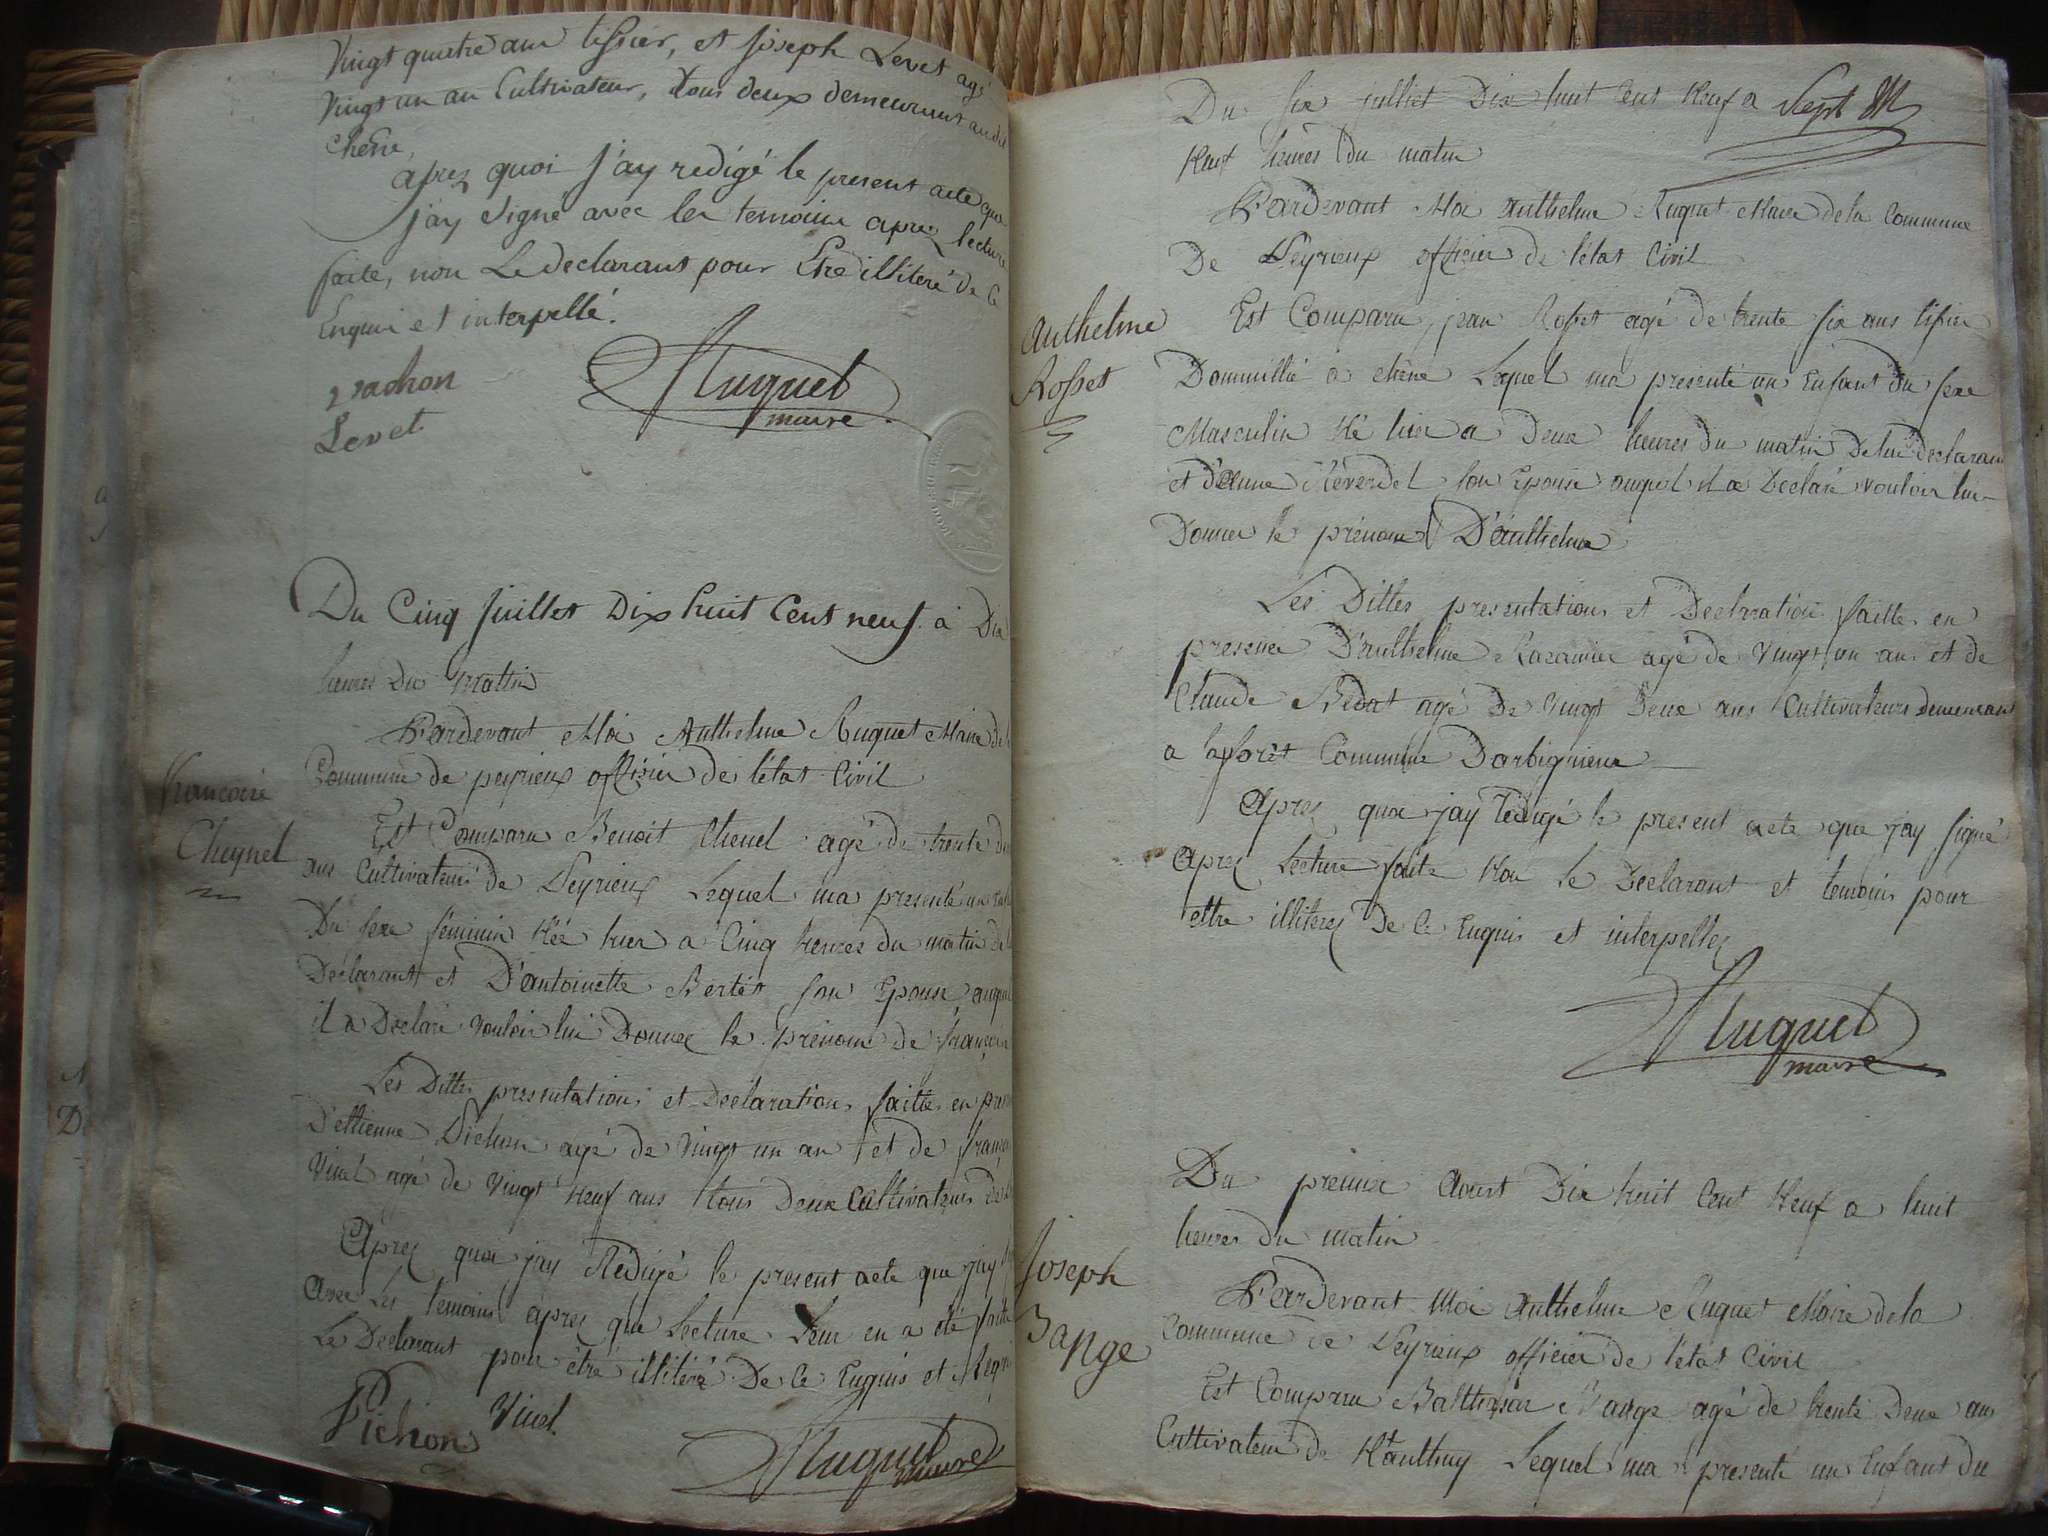 Vingt quatre ans tissier, et Joseph Levet agé
Vingt un an Cultivateur, tous deux demeurant audit
chêne,
aprez quoi j'ay redigé le present acte que
j'ay signé avec les temoins aprez lecture
faite, non Le declarant pour Etre illiteré de ce
Enquis et interpellé.
Levet
Ruguet
maire
Du Cinq Juillet Dix huit Cent neuf à Dix
heures Du Mattin
Pardevant Moi Anthelme Ruguet Maire de la
Commune de peyrieux officier de l'état Civil
Francoise
Cheynel
Est Comparu Benoit Chenel agé de trente
ans Cultivateur de Peyrieux Lequel ma presenté un
Du sexe féminin Née hier a Cinq heures du matin de
Declarant et D'antoinette Bertet son Epouse auquel
il a Declaré vouloir lui Donner le prénom de françoise
Les Dittes presentations et Declarations faittes en
D'ettienne Pichon agé de Vingt un an et de
Vinel agé de Vingt Neuf ans tous Deux Cultivateurs
Aprez quoi jay Rédigé le present acte que jay
avec Les temoins aprez que Lecture Leur en a été faite
Le Declarant pour être illitéré De Ce Enquis et
Pichon Vinel
Ruguet
maire
Du six juillet Dix huit Cent Neuf a Sept
Neuf heures Du matin
Pardevant Moi Anthelme Ruguet Maire de la Commune
De Peyrieux officier de l'état Civil
Anthelme
Rosset
Est Comparu jean Rosset agé De trente six ans tissier
Domicillié a chêne Lequel ma presenté un Enfant Du sexe
Masculin Né hier a Deux heures du matin De lui declarant
et d'Anne Réverdel son Epouse auquel il a Declaré vouloir lui
Donner le prénom D'anthelme
Les Dittes presentations et Declaration faittes en
presence D'anthelme agé de Vingt un ans et de
Claude Bedat agé De Vingt Deux ans Cultivateurs demeurant
a la forêt Commune Darbignieux
Aprez quoi jay redigé le present acte que jay signé
Aprez Lecture faite Non le Declarant et temoins pour
ettre illiterez De Ce Enquis et interpellez
Ruguet
maire
Du premier Aoust Dix huit Cent Neuf a huit
heures Du matin
Joseph
Bange
Pardevant Moi Anthelme Ruguet Maire de la
Commune de Peyrieux officier de l'état Civil
Est Comparu Balthasar Bange agé de trente Deux ans
Cultivateur de Nanthuy Lequel ma presenté un Enfant Du